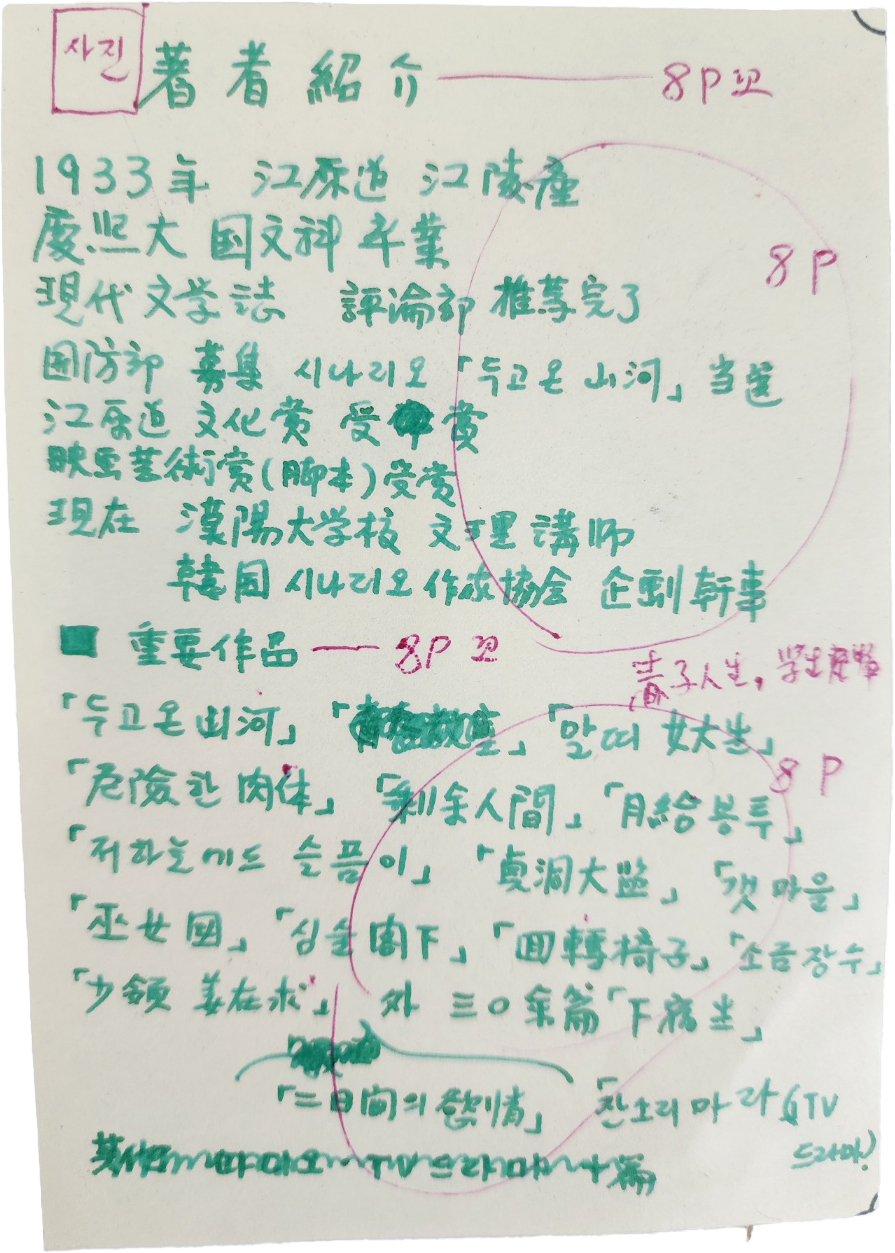 사진 著者紹介 — 8P고
1933年 江原道 江陵産
慶熙大 国文科 卒業
8P
現代文学誌 評論部 推薦完了
国防部 募集 시나리오 「두고온 山河」 当選
江原道 文化賞 受賞
映画芸術賞(脚本)受賞
現在 漢陽大学校 文理 講師
韓国 시나리오 作家協会 企劃幹事
■ 重要作品 — 8P 고
青子人生, 学生
「두고온 山河」 「말띠 女大生」
8P
「危險한 肉体」 「剰余人間」 「月給봉투」
「저하늘에도 슬픔이」 「貞洞大監」 「갯마을」
「巫女図」 「심술閣下」 「回轉椅子」 「소금장수」
「少領 姜在求」 外 三〇余篇 「下宿生」
「三日間의 慾情」 「잔소리마라」(TV
드라마)